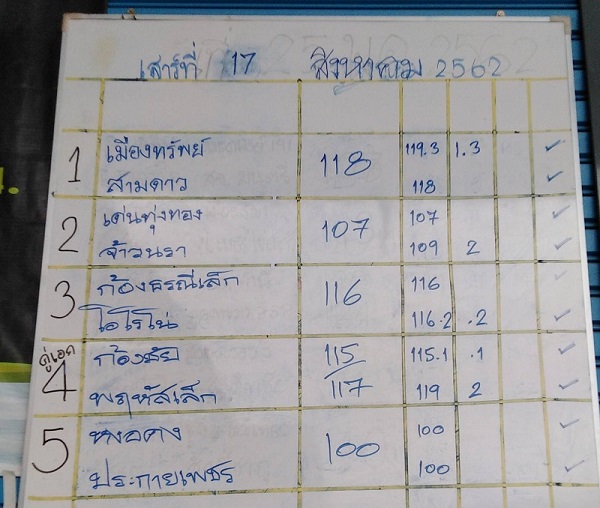 เสาร์ที่ 17 สิงหาคม 2562
1 เมืองทรัพย์ 118 119.3 1.3 ✓
สามดาว 118 ✓
2 เด่นทุ่งทอง 107 107 ✓
จ้าวนรา 109 2 ✓
3 ก้องธรณีเล็ก 116 116 ✓
โอโรโน่ 116.2 .2 ✓
คู่เอก
4 ก้องชัย 115 115.1 .1 ✓
พฤหัสเล็ก 117 119 2 ✓
5 100 100 ✓
ประกายเพชร 100 ✓